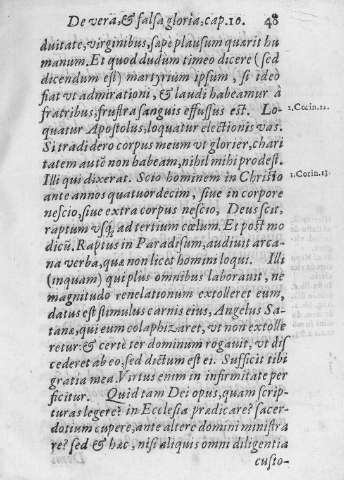 De verâ, & falsa gloria, cap. 10. 48
duitate, virginibus, sæpè plausum quærit hu
manum. Et quod dudum timeo dicere (sed
dicendum est) martyrium ipsum, si ideo
fiat vt admirationi, & laudi habeamur à
fratribus, frustra sanguis effussus est. Lo-
quatur Apostolus, loquatur electionis vas. 1. Corin. 12.
Si tradidero corpus meum vt glorier, chari
tatem autē non habeam, nihil mihi prodest.
Illi qui dixerat. Scio hominem in Christo 1. Corin. 13.
ante annos quatuordecim, siue in corpore
nescio, siue extra corpus nescio, Deus scit,
raptum vsq; ad tertium cœlum. Et post mo
dicū. Raptus in Paradisum, audiuit arca-
na verba, quæ non licet homini loqui. Illi
(inquam) qui plus omnibus laborauit, ne
magnitudo reuelationum extolleret eum,
datus est stimulus carnis eius, Angelus Sa-
tanæ, qui eum colaphizaret, vt non extolle
retur: & certè ter dominum rogauit, vt dis
cederet ab eo, sed dictum est ei. Sufficit tibi
gratia mea. Virtus enim in infirmitate per
ficitur. Quid tam Dei opus, quam scrip-
turas legere? in Ecclesia prædicare? sacer-
dotium cupere, ante altere domini ministra
re? sed & hæc, nisi aliquis omni diligentia
custo-